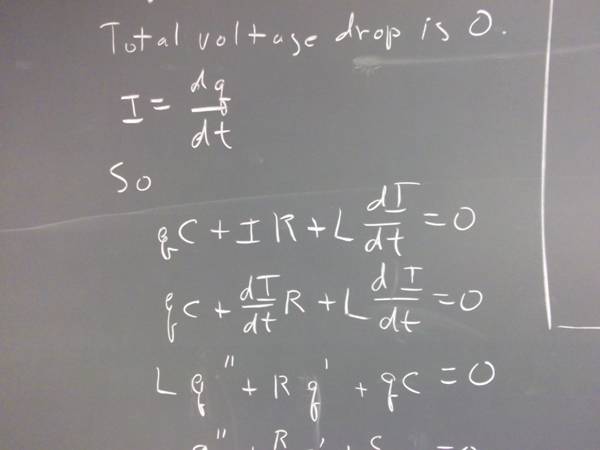 Total voltage drop is 0.
I = dq/dt
So
qC + IR + L dI/dt = 0
qC + dI/dt R + L dI/dt = 0
Lq'' + Rq' + qC = 0